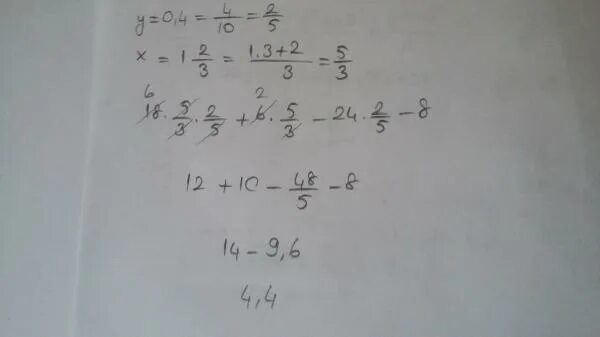 y = 0,4 = 4/10 = 2/5
x = 1 2/3 = 1.3+2/3 = 5/3
6 2
18 · 5/3 · 2/5 + 6 · 5/3 - 24 · 2/5 - 8
12 + 10 - 48/5 - 8
14 - 9,6
4,4